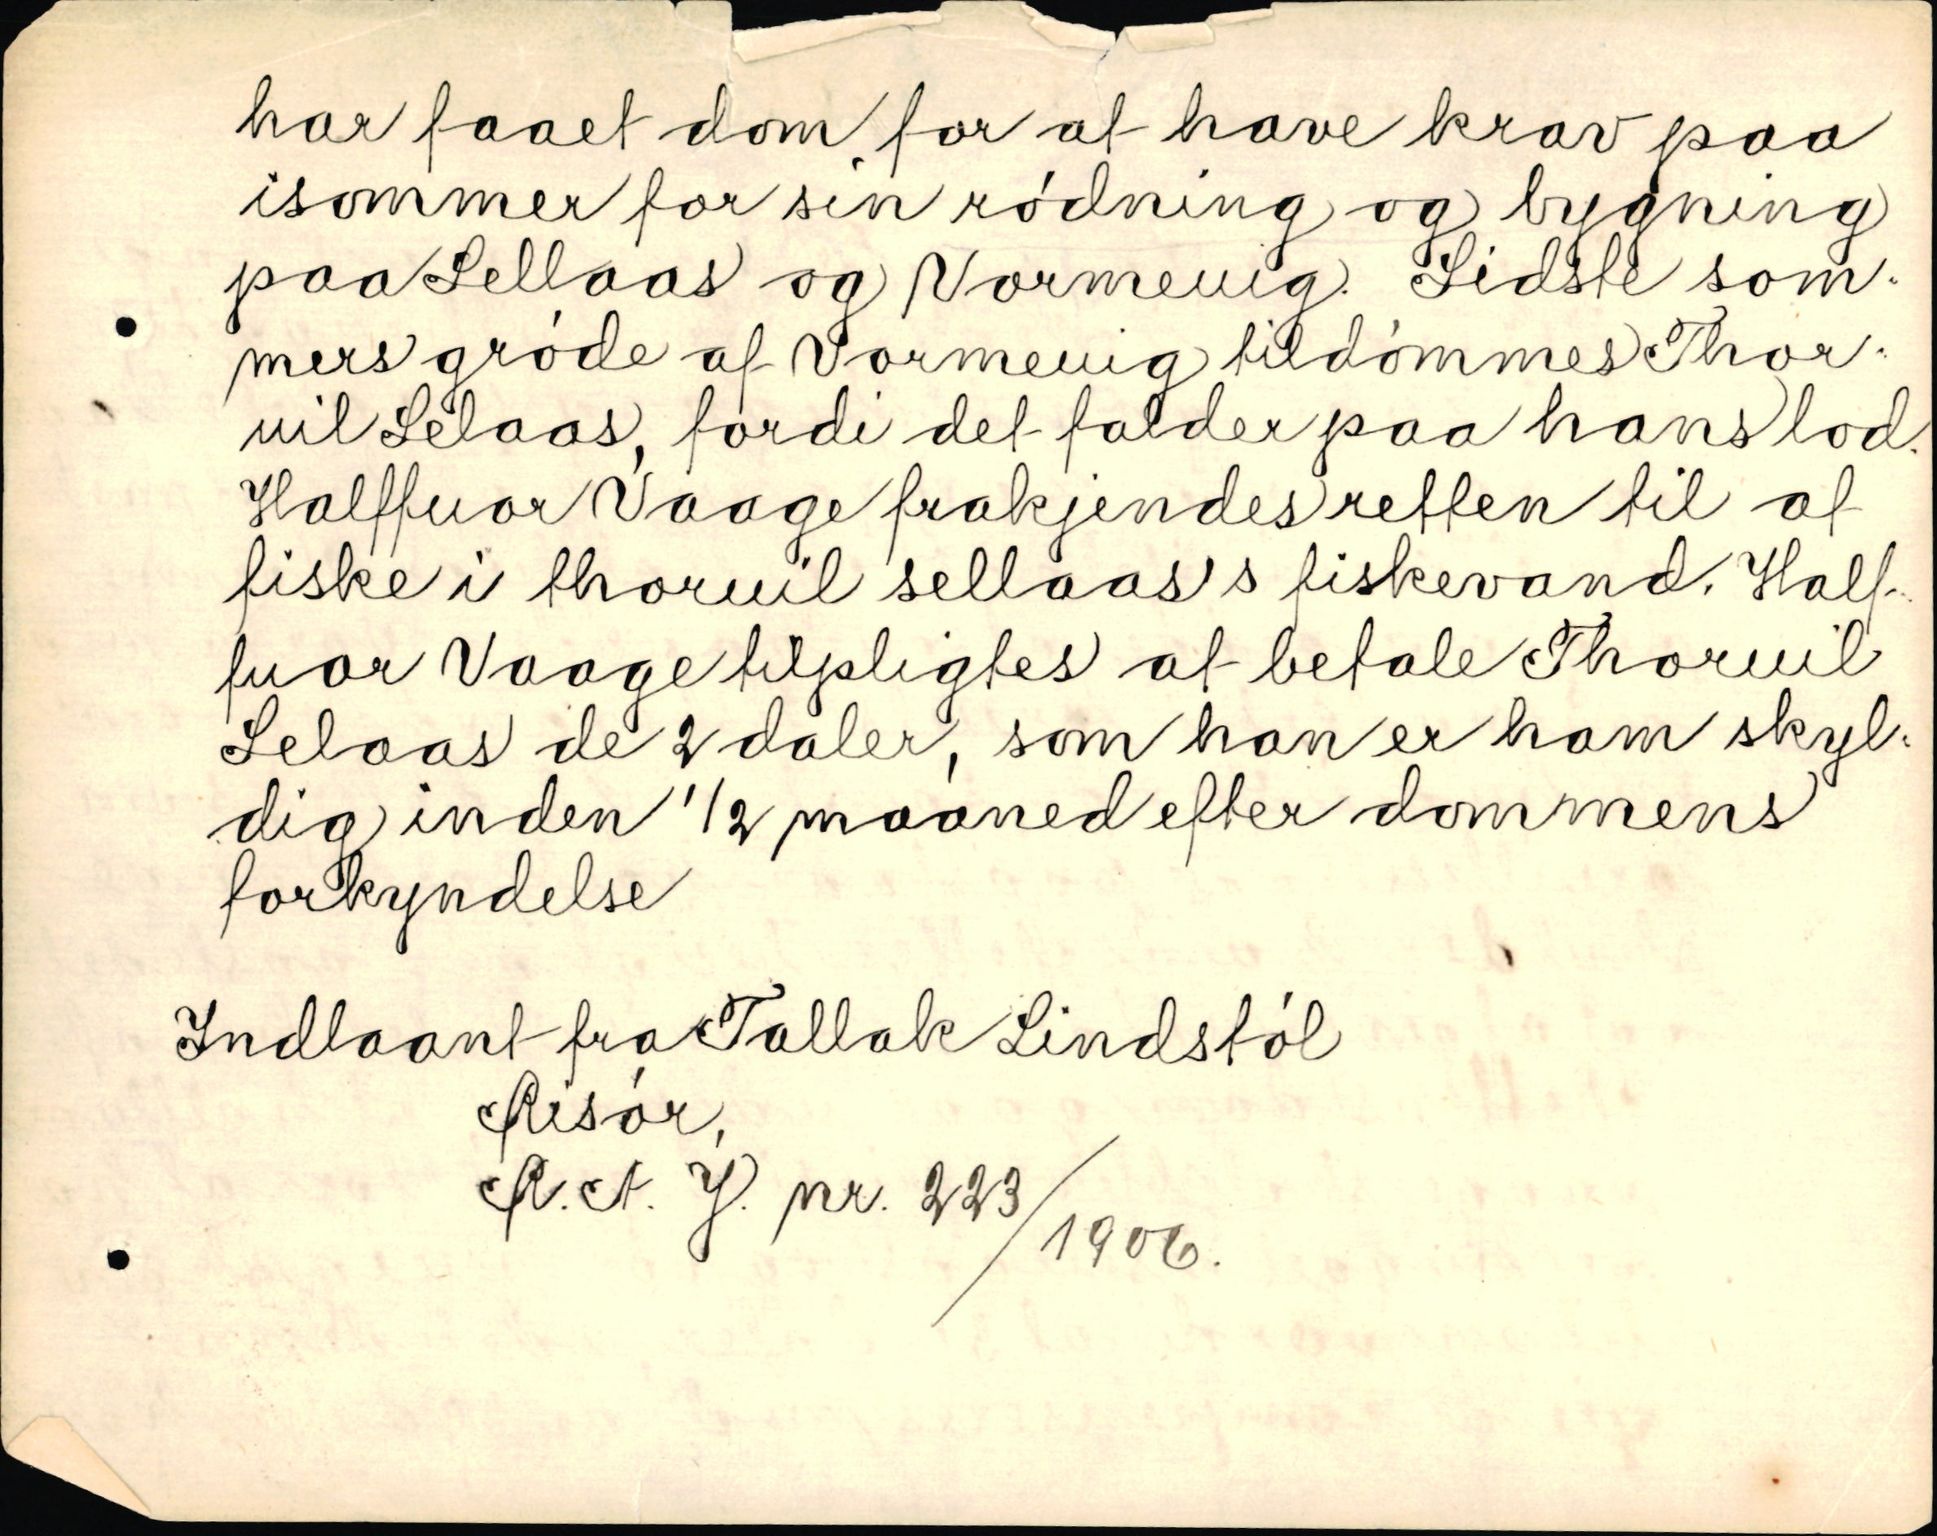 har faaet dom for at have krav paa
isommer for sinródning og bygning
paa Sellaas og Vormeuig. Sidste som-
mers gróde af Vormeuig tildómmes Thor-
uil Selaas, fordi det falder paa hans lod.
Halffuor Vaage frakjendes retten til at
fiske i thoruil sellaas's fiskevand. Half-
fuor Vaage tilpligtes at betale Thoruil
Selaas de 2 daler, som han er ham skyl-
dig inden 1/2 maaned efter dommens
forkyndelse
Indlaant fra Tallak Lindstól
Risór,
R. A. Y. nr. 223/1906.